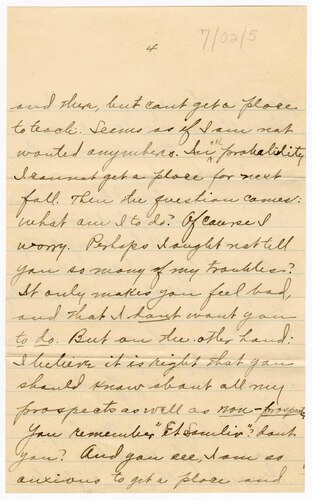 4
7/02/5
and there, but cant get a place
to teach. Seems as if I am not
wanted anywhere. In all probability
I cannot get a place for next
fall. Then the question comes:
What am I to do? Of course I
worry. Perhaps I ought not tell
you so many of my troubles?
It only makes you feel bad,
and that I dont want you
to do. But on the other hand:
I believe it is right that you
should know about all my
prospects as well as non-prospects
You remember "Et Similia"? dont
you? And you see, I am so
anxious to get a place and